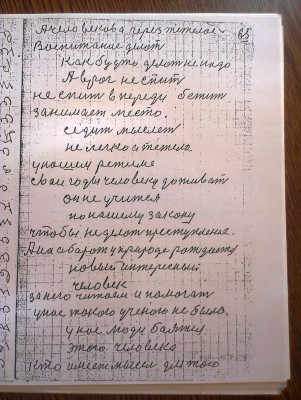 65
А человек ова через тетелое
Воспитание делот
Как будто делот не надо
А враг не спит
не спит впереди бежит
занимает место.
седит мыслет
не легко а тежело
унашим режиме
сваи годы человеку доживат
он не учится
по нашему закону
чтобы не делот преступление.
А наабарот уприроде рождает
новый интересный
человек
за него читаем и помогат
унас такого ученого не было.
унас люди баятся
этого человека
кто имеет мысел для того